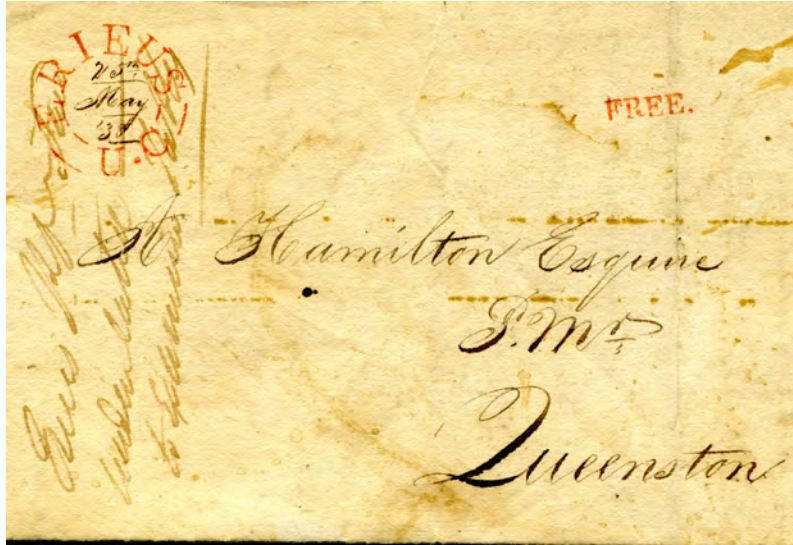 ERIEUS
25th
May
'38
U.C
FREE.
A. Hamilton Esquire
P. Mr
Queenston
Erie